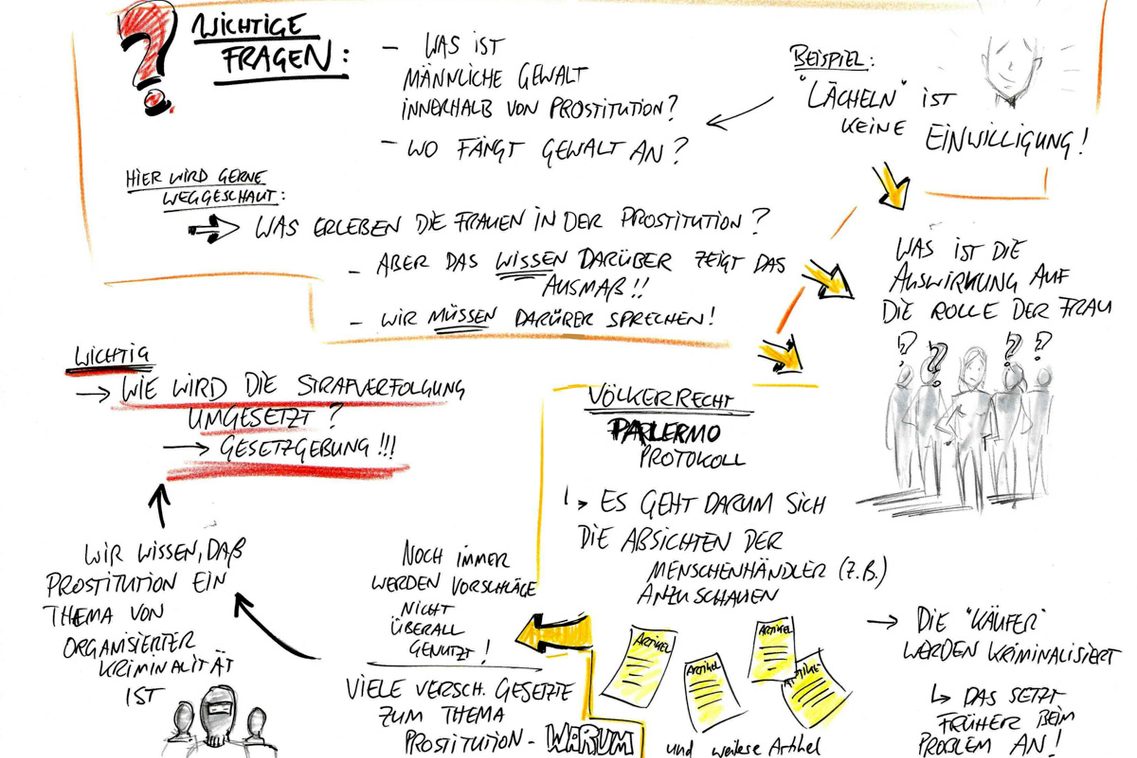 ?
WICHTIGE
FRAGEN:
- WAS IST
MÄNNLICHE GEWALT
INNERHALB VON PROSTITUTION?
- WO FÄNGT GEWALT AN?
BEISPIEL:
"LÄCHELN" IST
KEINE EINWILLIGUNG!
HIER WIRD GERNE
WEGGESCHAUT:
WAS ERLEBEN DIE FRAUEN IN DER PROSTITUTION?
- ABER DAS WISSEN DARÜBER ZEIGT DAS
AUSMAß!!
- WIR MÜSSEN DARÜBER SPRECHEN!
WAS IST DIE
AUSWIRKUNG AUF
DIE ROLLE DER FRAU
? ? ? ?
WICHTIG
→ WIE WIRD DIE STRAFVERFOLGUNG
UMGESETZT?
→ GESETZGEBUNG!!!
WIR WISSEN, DAß
PROSTITUTION EIN
THEMA VON
ORGANISIERTER
KRIMINALITÄT
IST
VÖLKERRECHT
PALERMO
PROTOKOLL
↳ ES GEHT DARUM SICH
DIE ABSICHTEN DER
MENSCHENHÄNDLER (Z.B.)
ANZUSCHAUEN
ARTIKEL
ARTIKEL
ARTIKEL
ARTIKE
und weitere Artikel
→ DIE "KÄUFER"
WERDEN KRIMINALISIERT
↳ DAS SETZT
FRÜHER BEIM
PROBLEM AN!
NOCH IMMER
WERDEN VORSCHLÄGE
NICHT
ÜBERALL
GENUTZT!
VIELE VERSCH. GESETZE
ZUM THEMA
PROSTITUTION - WARUM